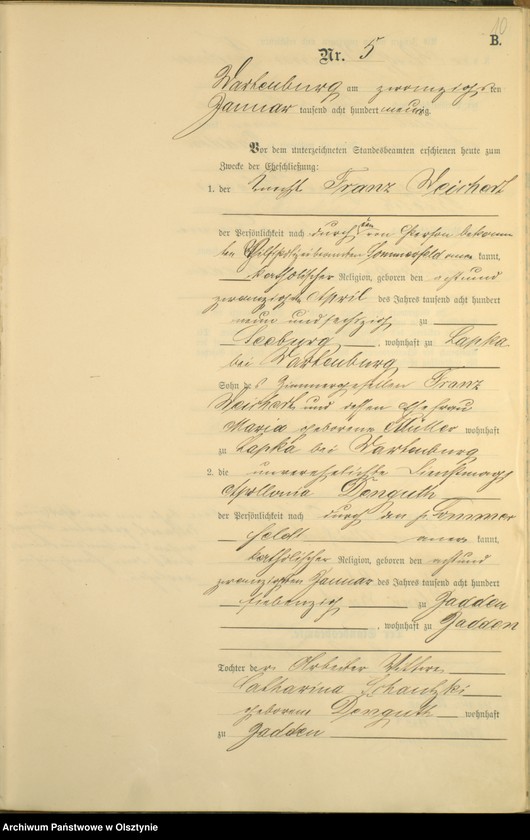 10
B.
Nr. 5
Wartenburg am zwanzigsten
Januar tausend acht hundert neunzig.
Vor dem unterzeichneten Standesbeamten erschienen heute zum
Zwecke der Eheschließung:
1. der Knecht Franz Weichert
der Persönlichkeit nach durch den von Person bekann
ten Sommerfeld kannt,
katholischer Religion, geboren den achtund
zwanzigsten April des Jahres tausend acht hundert
neun und sechszig zu
Seeburg, wohnhaft zu Lapka
bei Wartenburg
Sohn des Zimmergesellen Franz
Weichert und dessen Ehefrau
Maria geborene Müller wohnhaft
zu Lapka bei Wartenburg
2. die unverehelichte Dienstmagd
Apollonia Denguth
der Persönlichkeit nach durch den p. Sommer
feldt aner kannt,
katholischer Religion, geboren den achtund
zwanzigsten Januar des Jahres tausend acht hundert
siebenzig zu Gadden
, wohnhaft zu Gadden
Tochter der Arbeiter Wittwe
Catharina
geborene Denguth wohnhaft
zu Gadden
Archiwum Państwowe w Olsztynie